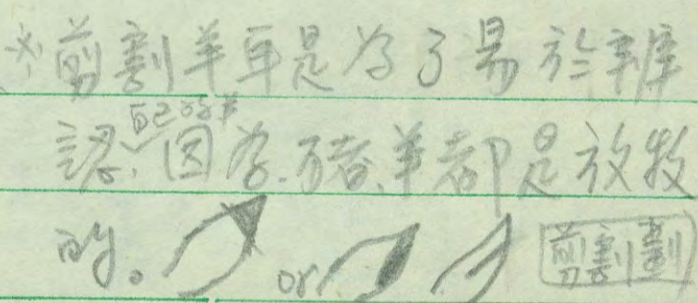 ※剪割羊耳是為了易於辨
認自己的羊,因為豬、羊都是放牧
的。 or 剪割